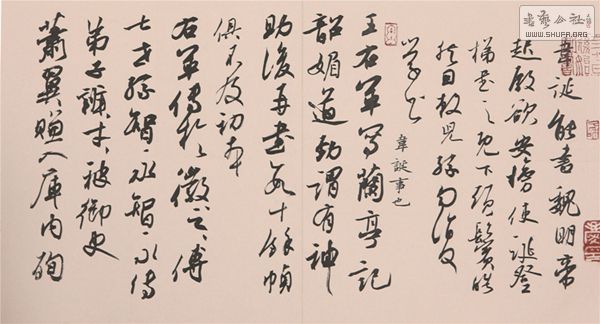 韋誕能書魏明帝
起殿欲安榜使誕登
梯書之既下頭鬢皓
然因敕兒孫勿復
學書
韋誕事也
王右軍寫蘭亭記
韶媚遒勁謂有神
助後再書數十餘幀
俱不及初本
右軍傳於徽之傳
七世孫智永智永傳
弟子辯才被御史
蕭翼賺入庫内殉
書藝公社
WWW.SHUFA.ORG